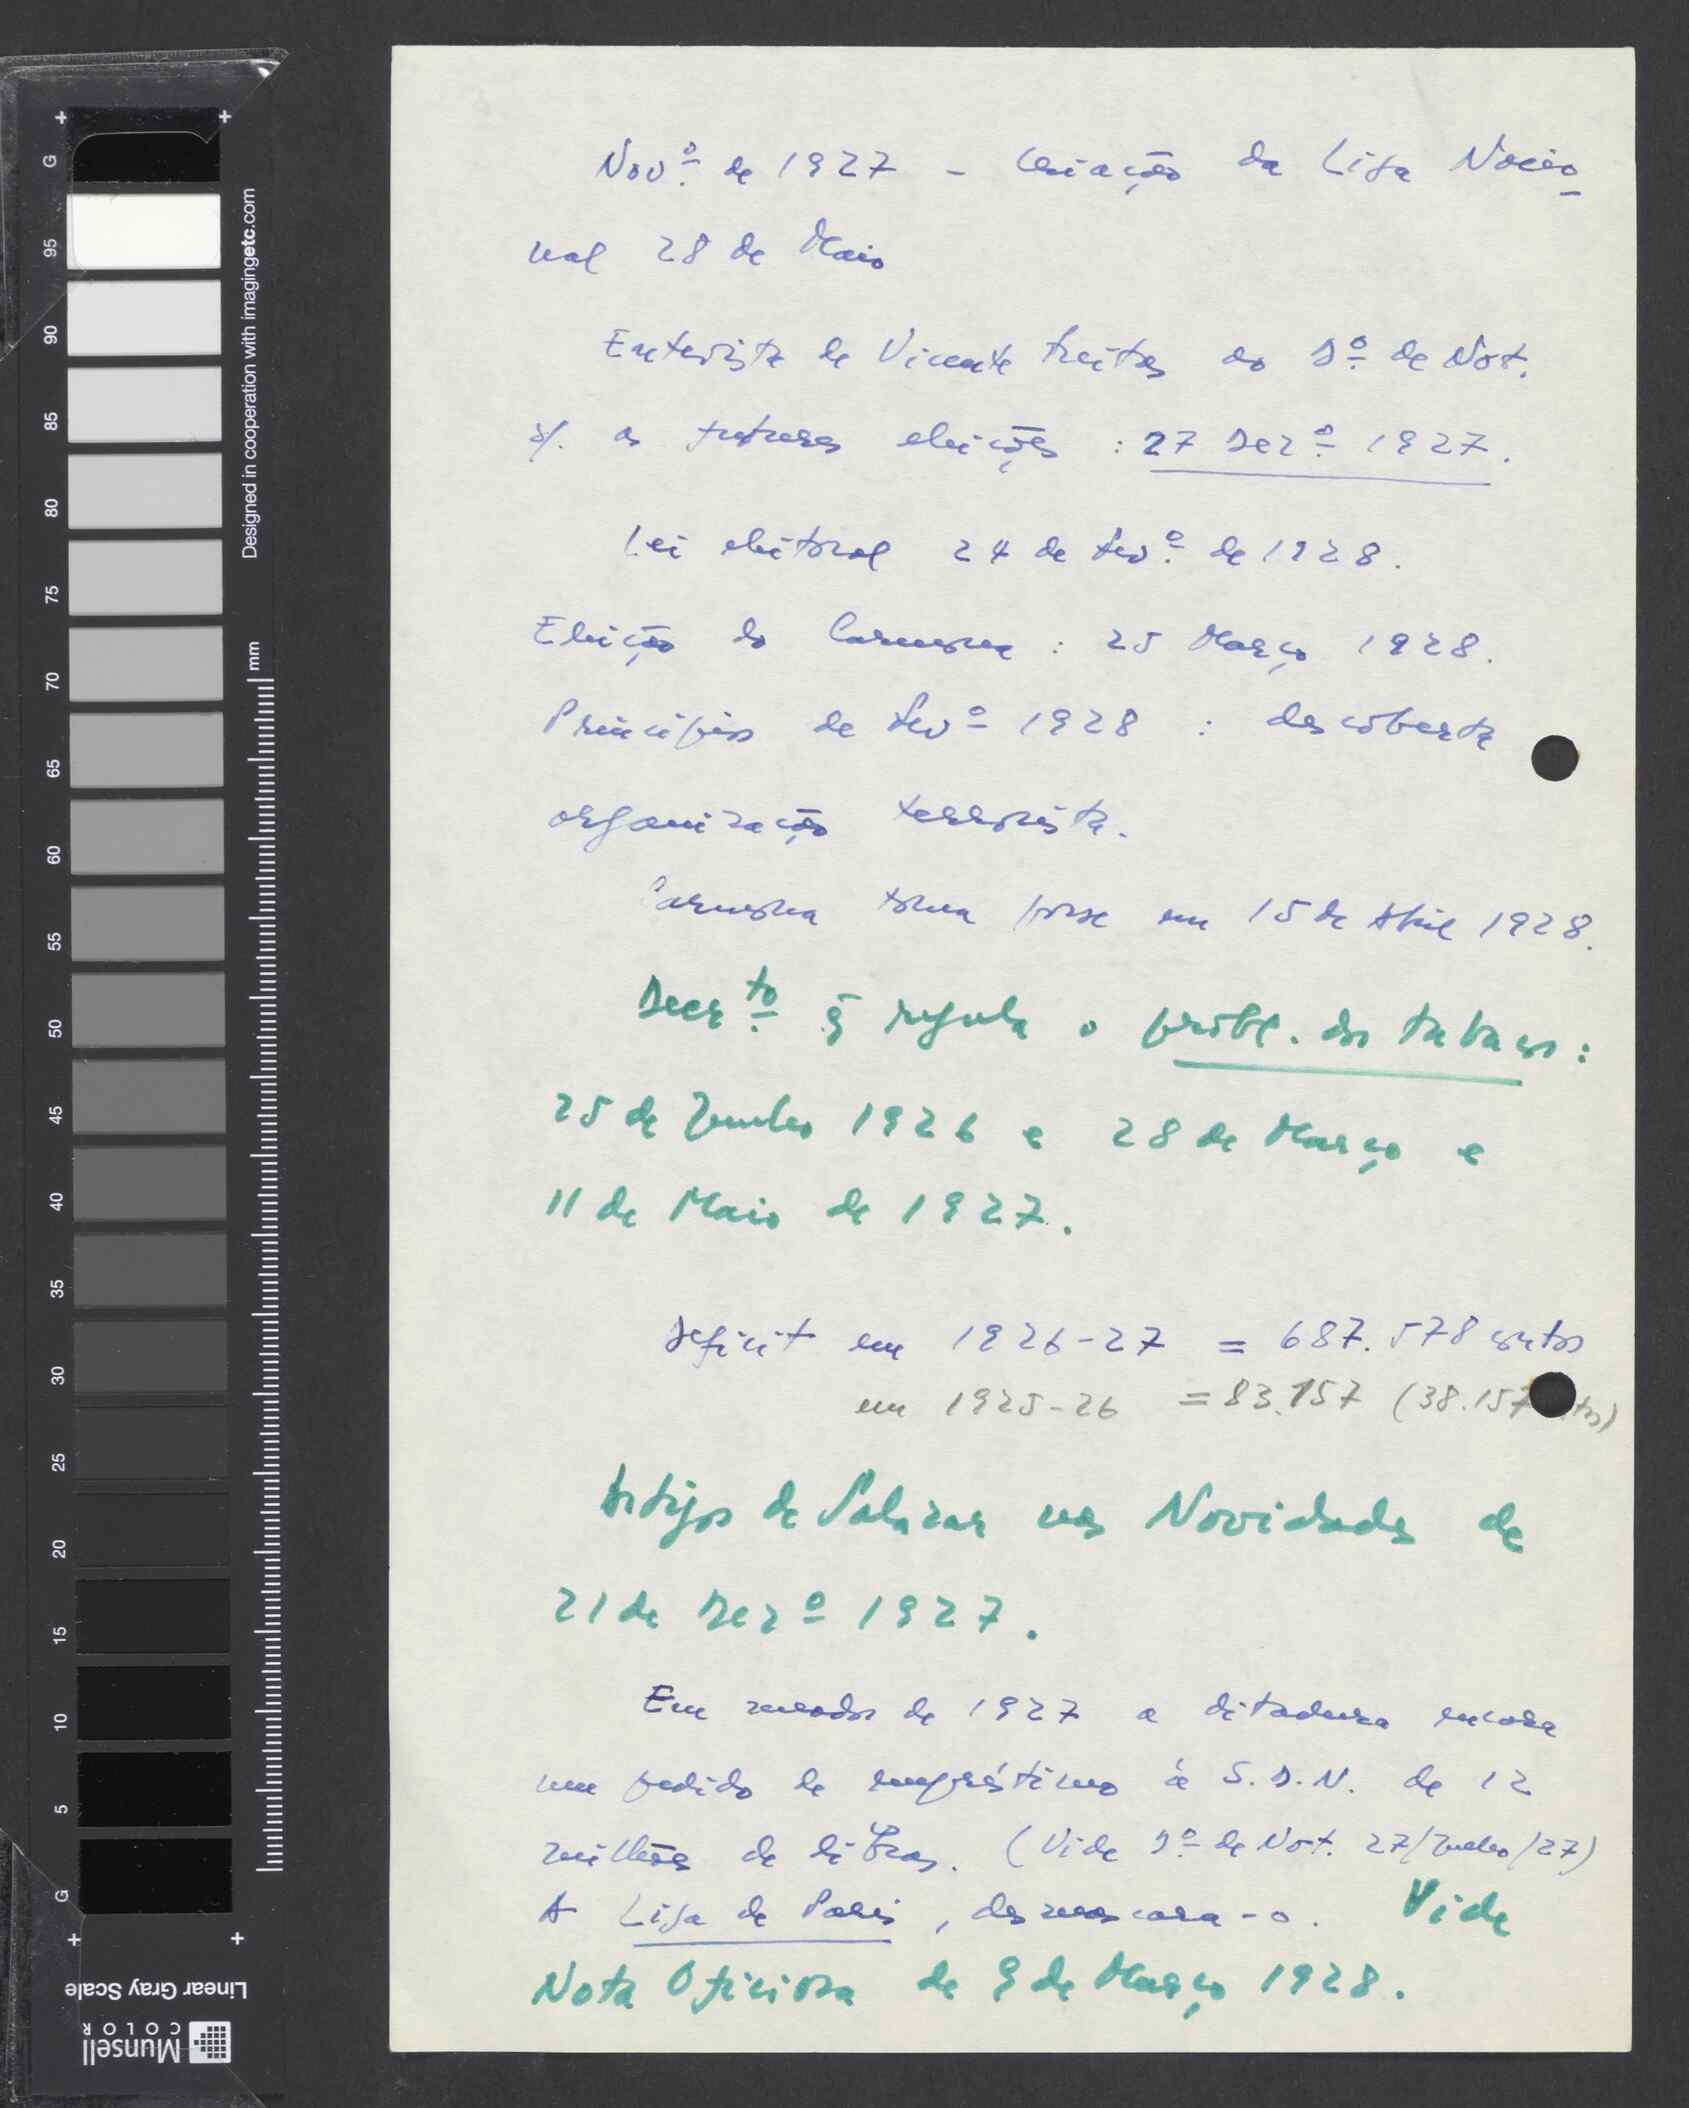 Nov.º de 1927 - Criação da Liga Nacio-
nal 28 de Maio
Entrevista de Vicente Freitas ao D.º de Not.
s/. as futuras eleições : 27 Dez.º 1927.
Lei eleitoral 24 de Fev.º de 1928.
Eleição do Carmona : 25 Março 1928.
Princípios de Fevº 1928 : descoberta
organização terrorista.
Carmona toma posse em 15 de Abril 1928.
Decr.to q̃ regula o probl. dos tabacos :
25 de Junho 1926 e 28 de Março e
11 de Maio de 1927.
Deficit em 1926-27 = 687.578 contos
em 1925-26 = 83.157 (38.157
Artigos de Salazar nas Novidades de
21 de Dezº 1927.
Em meados de 1927 a ditadura encara
um pedido de empréstimo à S.D.N. de 12
milhões de libras. (Vide D.º de Not. 27/Junho/27)
A Liga de Paris, desmascara-o. Vide
Nota Oficiosa de 9 de Março 1928.
G 95 90 85 80 75 70 65 60 55 50 45 40 35 30 25 20 15 10 5 G
Designed in cooperation with imagingetc.com
mm
Linear Gray Scale
Munsell
COLOR